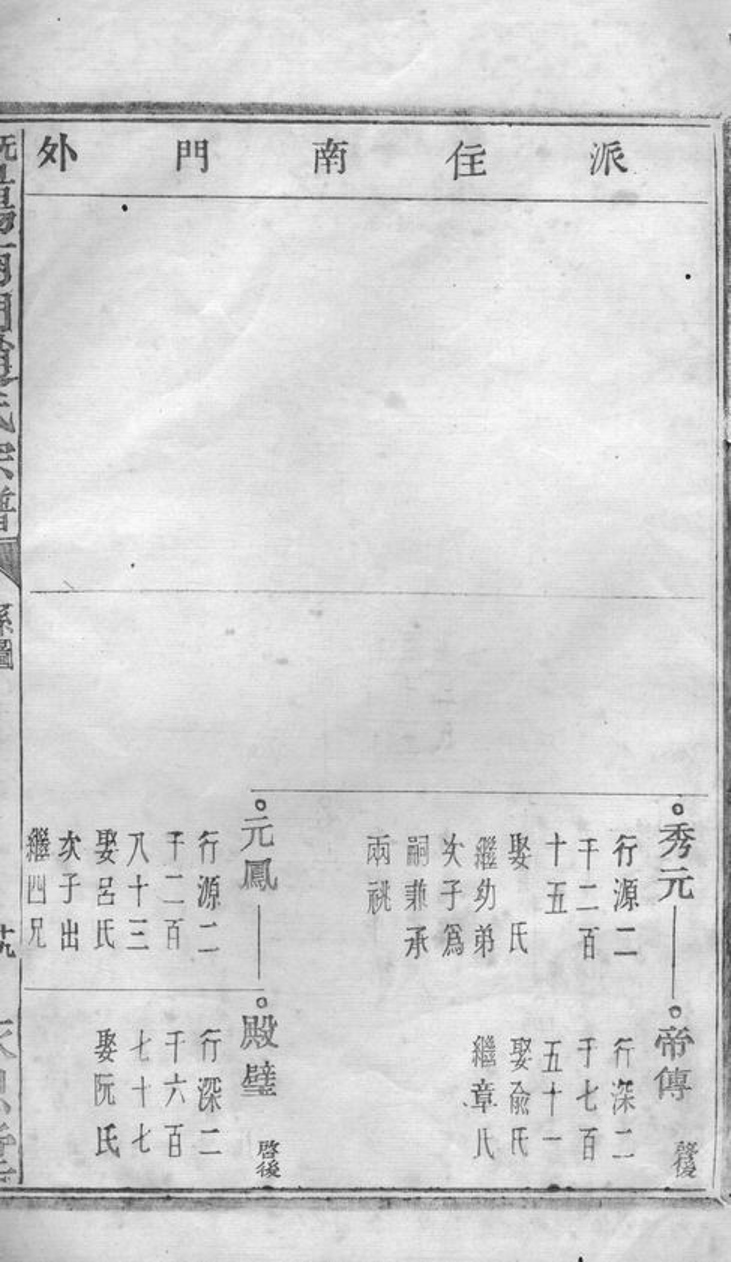 派住南門外
秀元
行源二
千二百
十五
娶　氏
繼幼弟
次子爲
嗣兼承
兩祧
帝傳
行深二
千七百
五十一
娶俞氏
繼章氏
啓後
元鳳
行源二
千二百
八十三
娶呂氏
次子出
繼四兄
殿璧
行深二
千六百
七十七
娶阮氏
啓後
氏宗譜
系圖